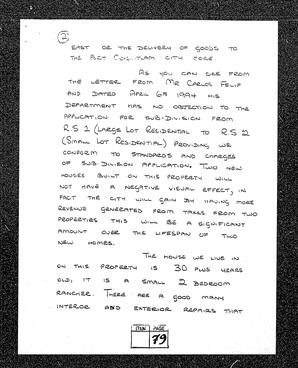 2
EAST OR THE DELIVERY OF GOODS TO
THE PORT COQUITLAM CITY CORE.
AS YOU CAN SEE FROM
THE LETTER FROM MR CARLOS FELIP
AND DATED APRIL 6th 1994 HIS
DEPARTMENT HAS NO OBJECTION TO THE
APPLICATION FOR SUB-DIVISION FROM
R.S 1 (LARGE LOT RESIDENTAL TO R.S 2
(SMALL LOT RESIDENTIAL) PROVIDING WE
CONFORM TO STANDARDS AND CHARGES
OF SUB DIVISION APPLICATION. TWO NEW
HOUSES BUILT ON THIS PROPERTY WILL
NOT HAVE A NEGATIVE VISUAL EFFECT, IN
FACT THE CITY WILL GAIN BY HAVING MORE
REVENUE GENERATED FROM TAXES FROM TWO
PROPERTIES THIS WILL BE A SIGNIFICANT
AMOUNT OVER THE LIFESPAN OF TWO
NEW HOMES.
THE HOUSE WE LIVE IN
ON THIS PROPERTY IS 30 PLUS YEARS
OLD, IT IS A SMALL 2 BEDROOM
RANCHER. THERE ARE A GOOD MANY
INTERIOR AND EXTERIOR REPAIRS THAT
ITEM PAGE
79